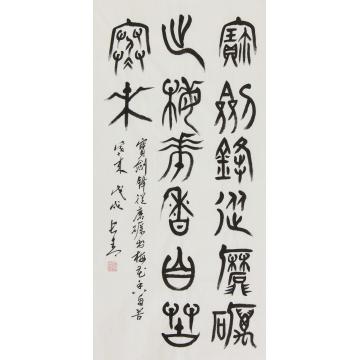 寶劍鋒從磨礪
出梅花香自苦
寒來
寶劍鋒從磨礪出梅花香自苦
寒來 戊戌